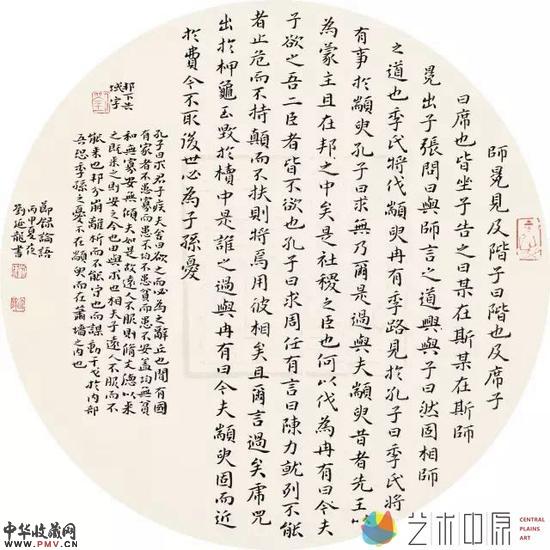 師冕見及階子曰階也及席子
曰席也皆坐子告之曰某在斯某在斯師
冕出子張問曰與師言之道與與子曰然固相師
之道也季氏將伐顓臾冉有季路見於孔子曰季氏將
有事於顓臾孔子曰求無乃爾是過與夫顓臾昔者先王以
為蒙主且在邦之中矣是社稷之臣也何以伐為冉有曰今夫
子欲之吾二臣者皆不欲也孔子曰求周任有言曰陳力就列不能
者止危而不持顛而不扶則將焉用彼相矣且爾言過矣虎兕
出於柙龜玉毀於櫝中是誰之過與冉有曰今夫顓臾固而近
於費今不取後世必為子孫憂
邦下
域字
孔子曰求君子疾夫舍曰欲之而必為之辭丘也聞有國
有家者不患寡而患不均不患貧而患不安蓋均無貧
和無寡安無傾夫如是故遠人不服則脩文德以來
之既來之則安之今由與求也相夫子遠人不服而不
能來也邦分崩離析而不能守也而謀動干戈於內部
吾恐季孫之憂不在顓臾而在蕭墻之內也
節錄論語
丙申夏夜
劉延龍書
中华收藏网
www.PMV.CN
艺术中原
CENTRAL
PLAINS
ART